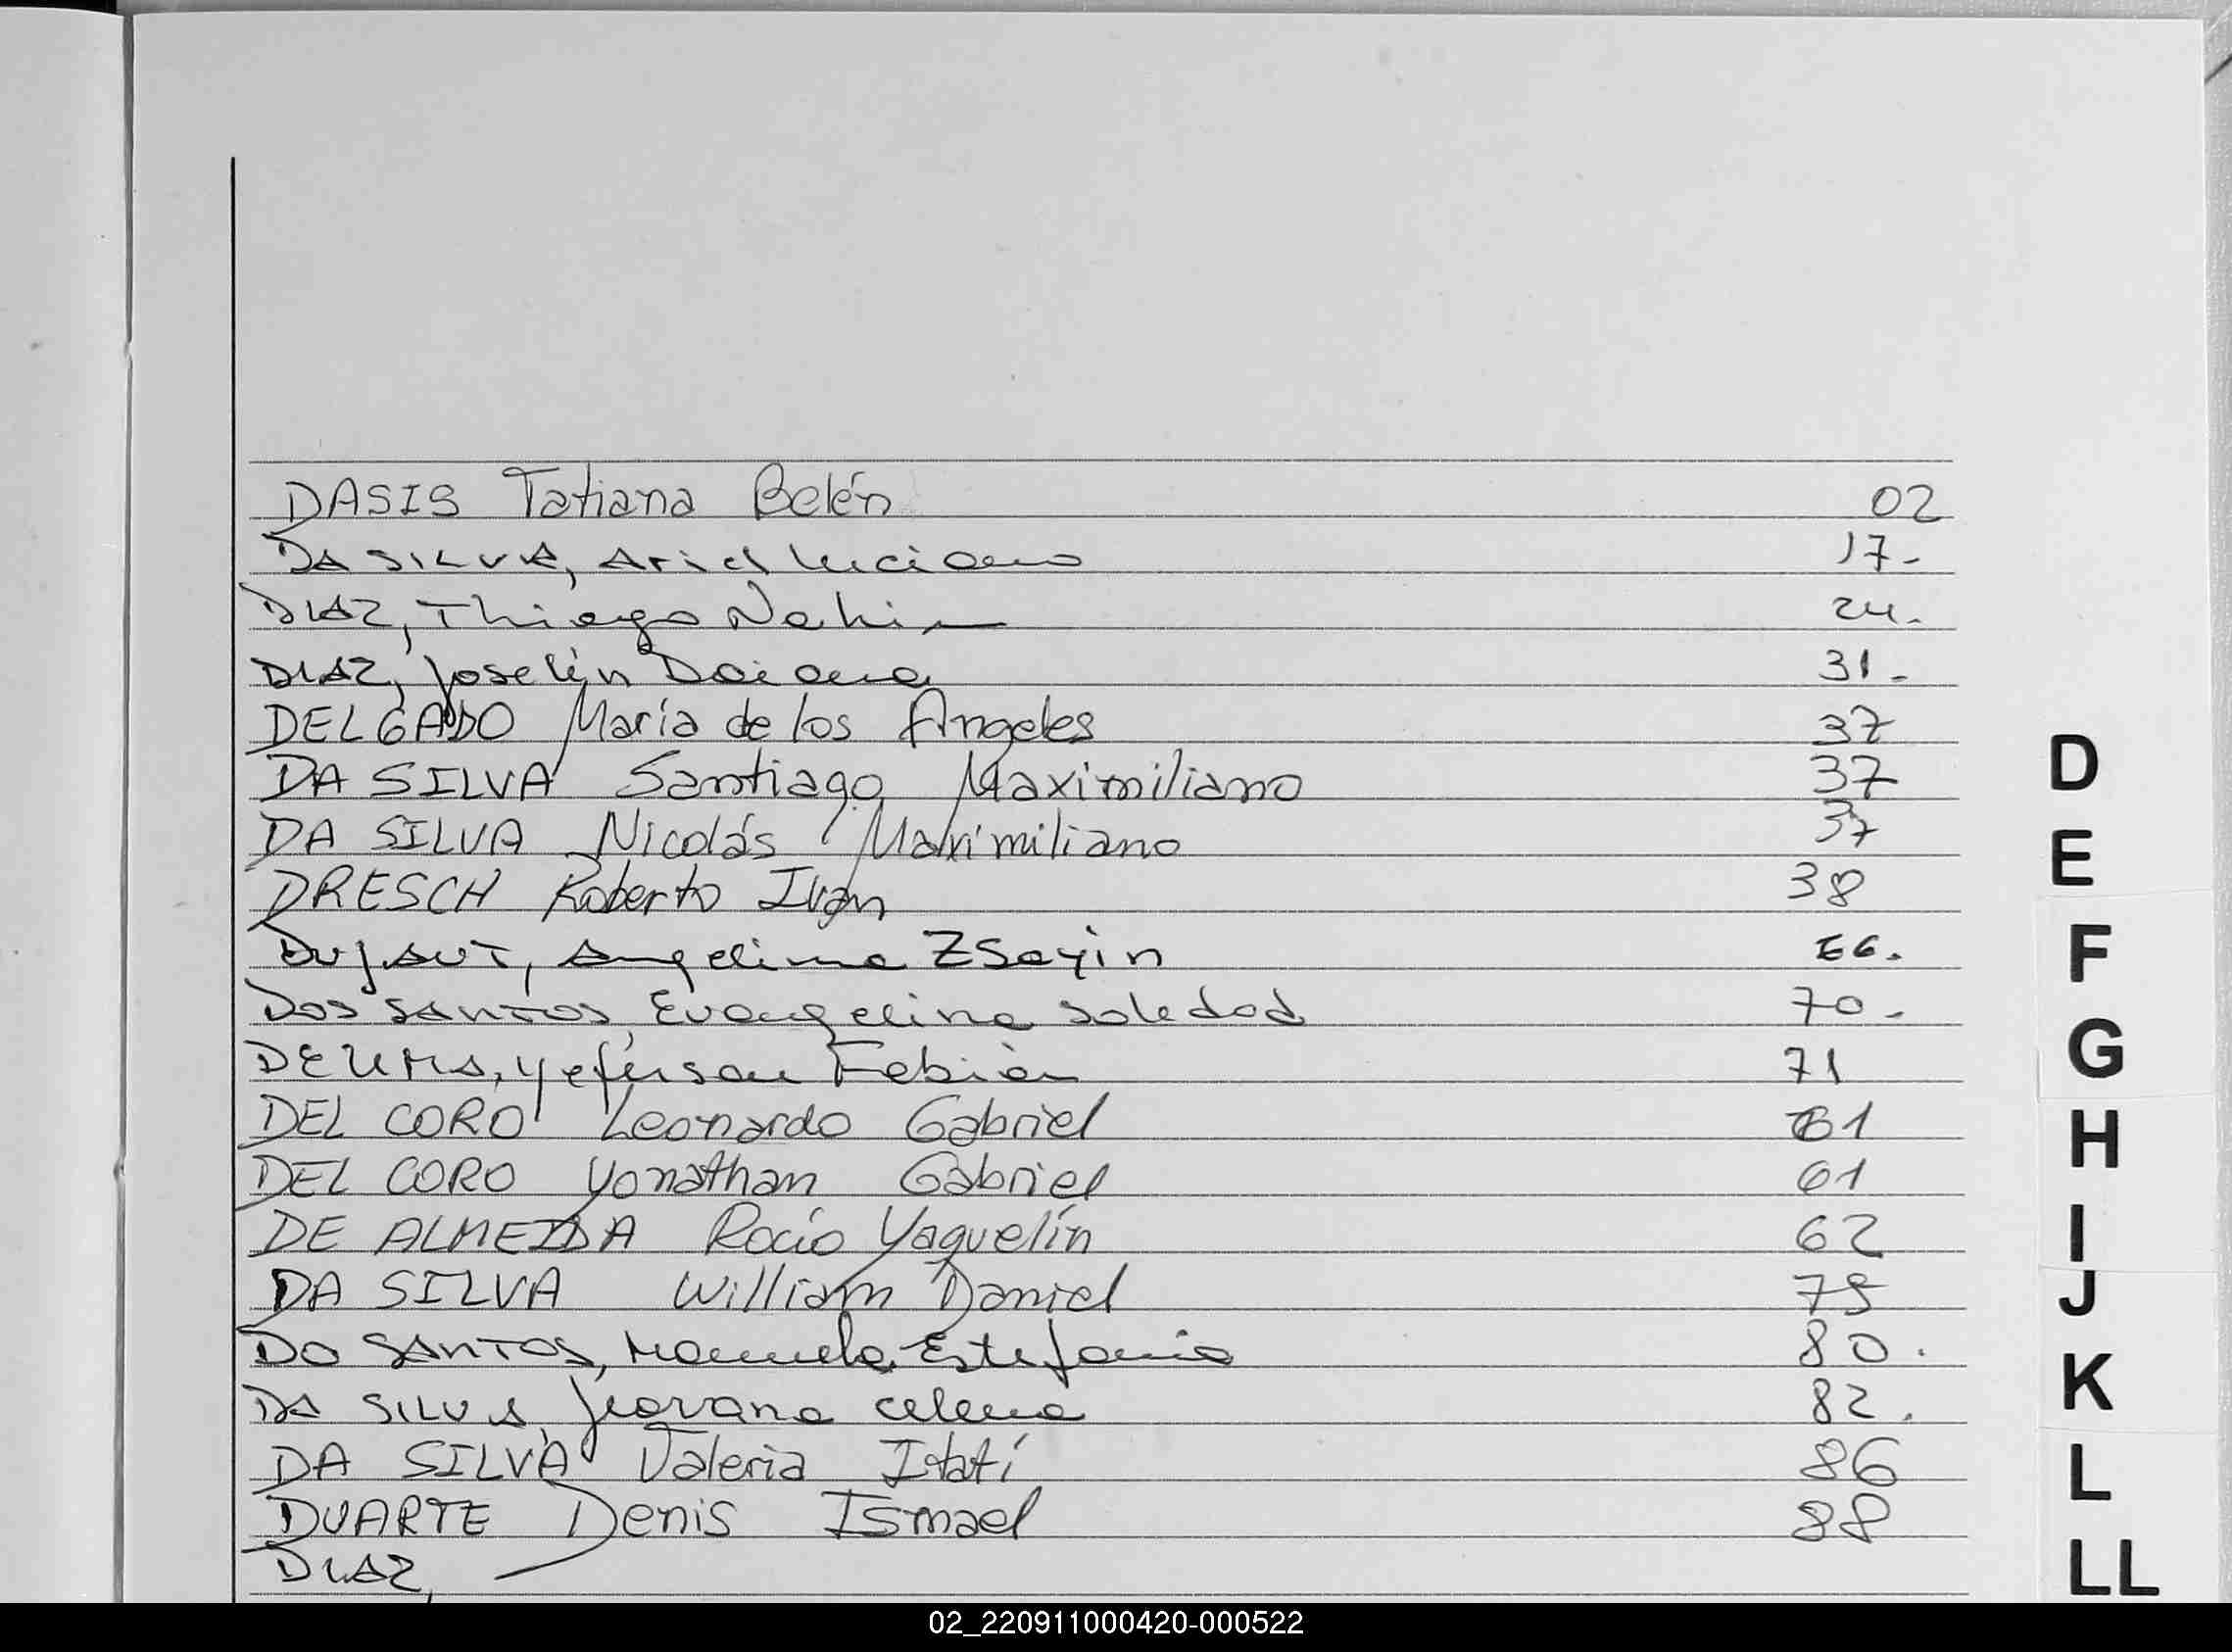 DASIS Tatiana Belén 02
DA SILVA, Ariel Luciano 17.
DIAZ, Thiago Nahin 24.
DIAZ, Joselín Daiana 31.
DELGADO María de los Angeles 37
DA SILVA Santiago Maximiliano 37
DA SILVA Nicolás Maximiliano 37
DRESCH Roberto Ivan 38
DUJAUT, Angelina 66.
DOS SANTOS, Evangelina Soledad 70.
Yeferson Fabián 71
DEL CORO Leonardo Gabriel 61
DEL CORO Yonathan Gabriel 61
DE ALMEIDA Rocío Yaquelín 62
DA SILVA William Daniel 75
DO SANTOS, Manuela Estefania 80.
DA SILVA, Jiovana Celena 82.
DA SILVA Valeria Itatí 86
DUARTE Denis Ismael 88
DIAZ,
D
E
F
G
H
I
J
K
L
LL
02_220911000420-000522